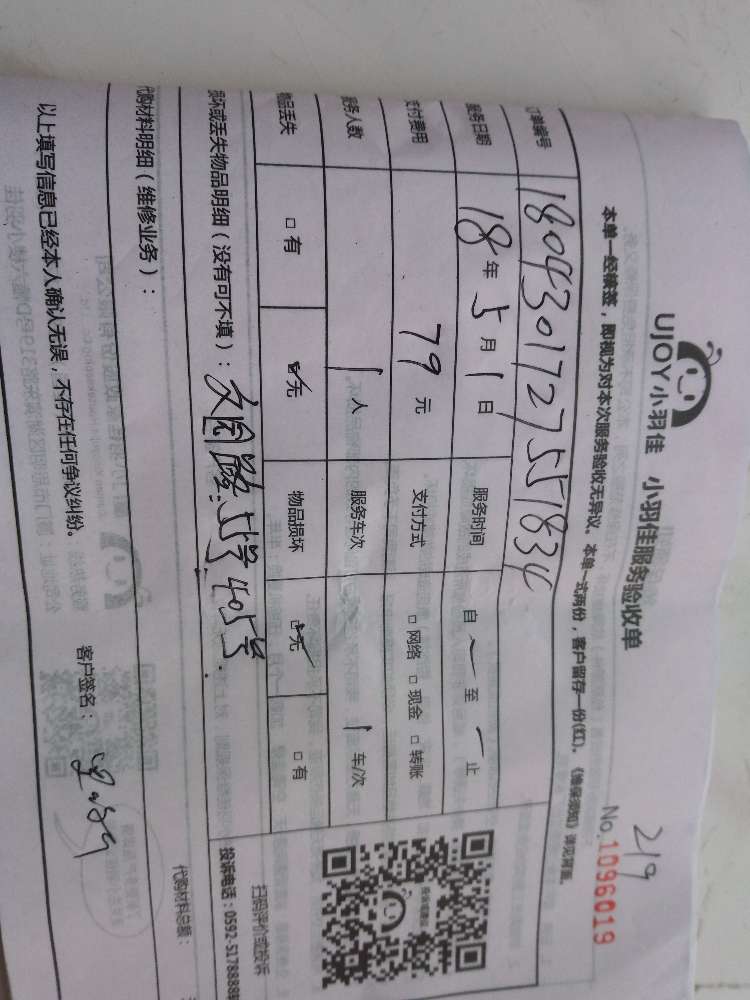 219
UJOY小羽佳 小羽佳服务验收单 No.1096019
本单一经横签，即视为对本次服务验收无异议。本单一式两份，客户留存一份(红)。《维保须知》详见背面。
订单编号 180430172755183
服务日期 18年5月1日 服务时间 自 至 止
支付费用 79元 支付方式 □网络 □现金 □转账
服务人数 1人 服务车次 1车/次
物品丢失 □有 □无 物品损坏 □无 □有
损坏或丢失物品明细（没有可不填）：文园路 51号405号
扫码评价或投诉
投诉电话：0592-5178888
代购材料明细（维修业务）：
代购材料总额：
以上填写信息已经本人确认无误，不存在任何争议纠纷。 客户签名：